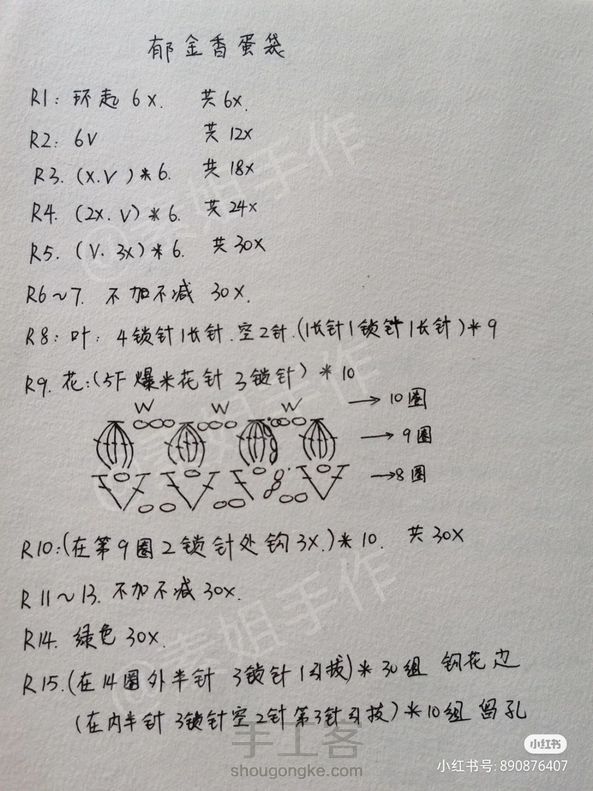 郁金香蛋袋
R1: 环起 6x. 共6x.
R2: 6V 共12x
R3. (x.V)*6. 共18x
R4. (2x.V)*6. 共24x
R5. (V.3x)*6. 共30x
R6~7. 不加不减 30x.
R8: 叶: 4锁针1长针.空2针.(1长针1锁针1长针)*9
R9. 花:(5F爆米花针 3锁针)*10
W W W → 10圈
→ 9圈
→ 8圈
R10:(在第9圈2锁针处钩3x.)*10. 共30x
R11~13. 不加不减30x.
R14. 绿色30x.
R15.(在14圈外半针 3锁针1引拔)*30组 钩花边
(在内半针3锁针空2针第3针引拔)*10组 留孔
@美姐手作
@美姐手作
@美姐手作
手工客
shougongke.com
小红书
小红书号: 890876407